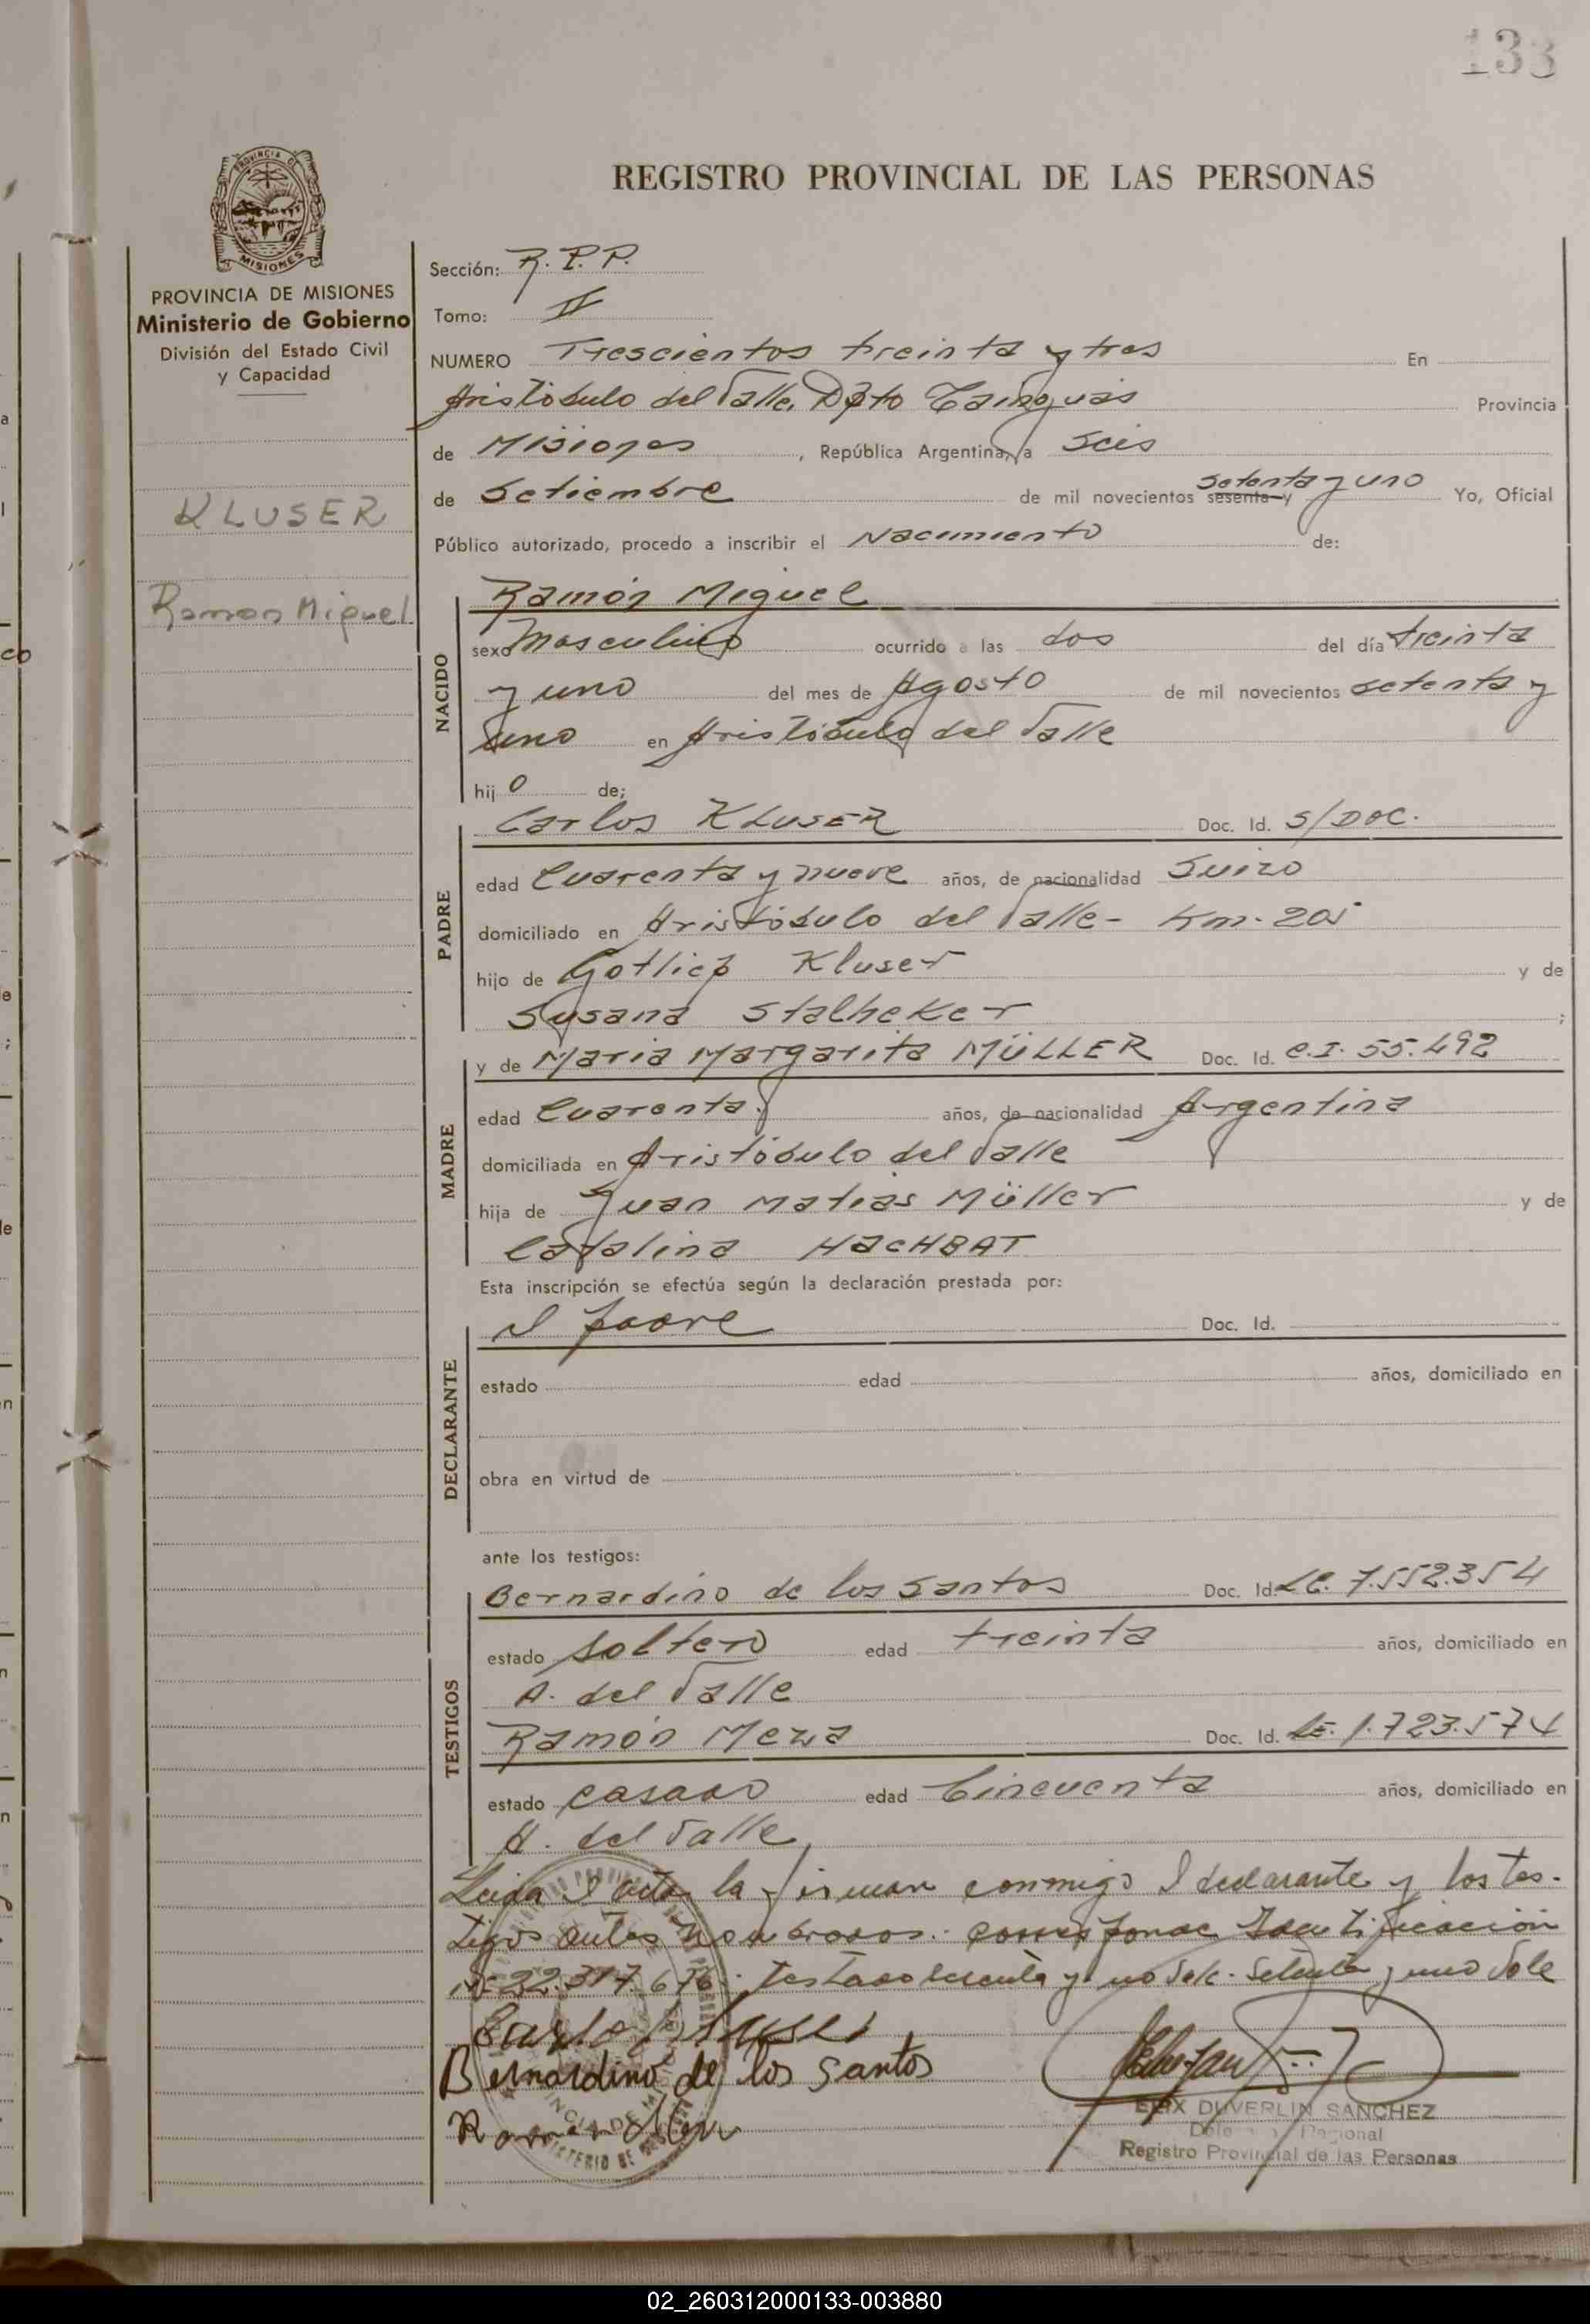 133
REGISTRO PROVINCIAL DE LAS PERSONAS
PROVINCIA DE MISIONES
Ministerio de Gobierno
División del Estado Civil
y Capacidad
KLUSER
Ramon Miguel
Sección: R.P.P.
Tomo: II
NUMERO Trescientos treinta y tres En
Aristóbulo del Valle, Dpto Cainguás Provincia
de Misiones, República Argentina, a Seis
de Setiembre de mil novecientos sesenta y setenta y uno Yo, Oficial
Público autorizado, procedo a inscribir el Nacimiento de:
NACIDO
Ramón Miguel
sexo Masculino ocurrido a las dos del día treinta
y uno del mes de Agosto de mil novecientos setenta y
uno en Aristóbulo del Valle
hijo de;
PADRE
Carlos KLUSER Doc. Id. S/DOC.
edad Cuarenta y nueve años, de nacionalidad Suizo
domiciliado en Aristóbulo del Valle - Km. 205
hijo de Gotlieb Kluser y de
Susana Stalheker ;
MADRE
y de Maria Margarita MÜLLER Doc. Id. C.I. 55.492
edad Cuarenta años, de nacionalidad Argentina
domiciliada en Aristóbulo del Valle
hija de Juan Matias Müller y de
Catalina HACHBAT
Esta inscripción se efectúa según la declaración prestada por:
DECLARANTE
el padre Doc. Id.
estado edad años, domiciliado en
obra en virtud de
ante los testigos:
TESTIGOS
Bernardino de los Santos Doc. Id. L.E. 7.552.354
estado soltero edad treinta años, domiciliado en
A. del Valle
Ramón Meza Doc. Id. L.E. 1.723.574
estado casado edad Cincuenta años, domiciliado en
A. del Valle
Leida el acta, la firman conmigo el declarante y los tes-
tigos antes nombrados. corresponde Identificación
Nº 22.317.676: Testado sesenta y no vale. Setenta y uno Vale
Carlos Kluser
Bernardino de los Santos
Ramon Meza
DUVERLIN SANCHEZ
Registro Provincial de las Personas
02_260312000133-003880